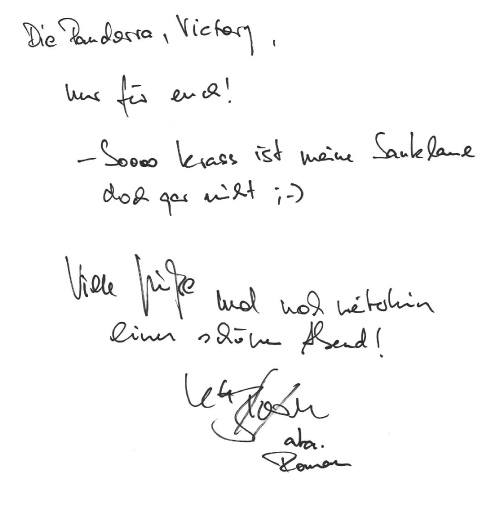 Die Pandorra, Victory,
nur für euch!
- Soooo krass ist meine Sauklaue
doch gar nicht ;-)
Viele Grüße und noch weiterhin
einen schönen Abend!
aka.
Roman